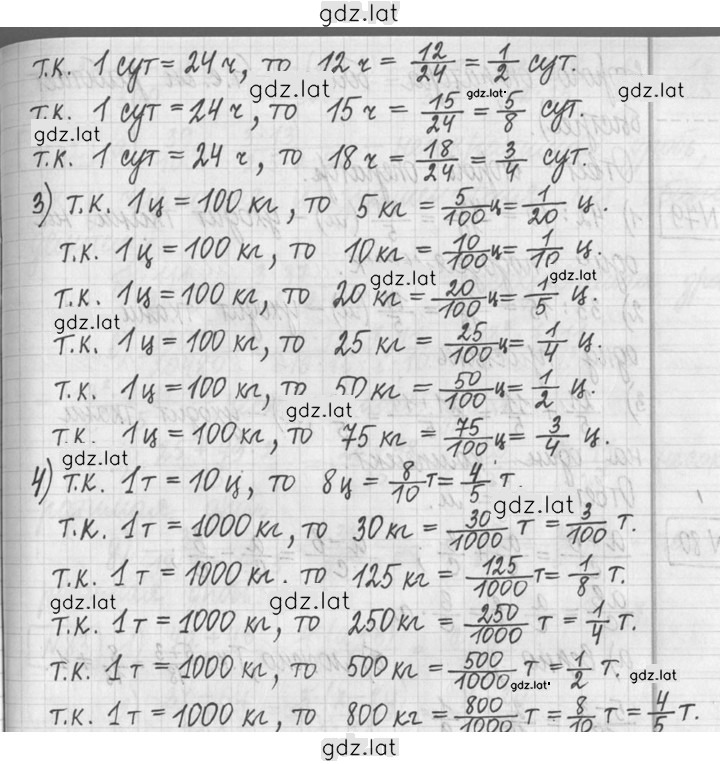 gdz.lat
т.к. 1 сут = 24 ч, то 12 ч = 12/24 = 1/2 сут.
gdz.lat gdz.lat gdz.lat
т.к. 1 сут = 24 ч, то 15 ч = 15/24 = 5/8 сут.
gdz.lat
т.к. 1 сут = 24 ч, то 18 ч = 18/24 = 3/4 сут.
3) т.к. 1 ц = 100 кг, то 5 кг = 5/100 ц = 1/20 ц.
т.к. 1 ц = 100 кг, то 10 кг = 10/100 ц = 1/10 ц.
gdz.lat gdz.lat
т.к. 1 ц = 100 кг, то 20 кг = 20/100 ц = 1/5 ц.
gdz.lat
т.к. 1 ц = 100 кг, то 25 кг = 25/100 ц = 1/4 ц.
т.к. 1 ц = 100 кг, то 50 кг = 50/100 ц = 1/2 ц.
gdz.lat
т.к. 1 ц = 100 кг, то 75 кг = 75/100 ц = 3/4 ц.
gdz.lat
4) т.к. 1 т = 10 ц, то 8 ц = 8/10 т = 4/5 т.
gdz.lat
т.к. 1 т = 1000 кг, то 30 кг = 30/1000 т = 3/100 т.
т.к. 1 т = 1000 кг. то 125 кг = 125/1000 т = 1/8 т.
gdz.lat gdz.lat
т.к. 1 т = 1000 кг, то 250 кг = 250/1000 т = 1/4 т.
т.к. 1 т = 1000 кг, то 500 кг = 500/1000 т = 1/2 т.
gdz.lat gdz.lat
т.к. 1 т = 1000 кг, то 800 кг = 800/1000 т = 8/10 т = 4/5 т.
gdz.lat